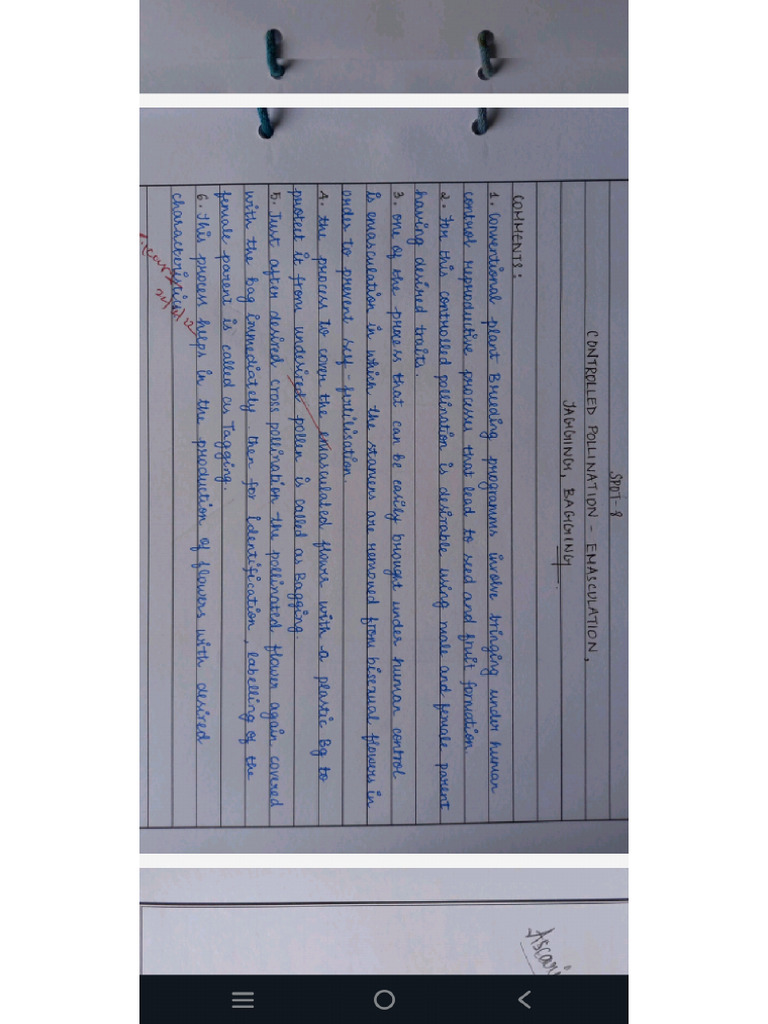 SPOT-8
CONTROLLED POLLINATION - EMASCULATION,
TAGGING, BAGGING.
COMMENTS:
1. Conventional plant Breeding programms involve bringing under human
control reproductive processes that lead to seed and fruit formation.
2. For this controlled pollination is desirable using male and female parent
having desired traits.
3. One of the process that can be easily brought under human control
is emasculation in which the stamens are removed from bisexual flowers in
order to prevent self-fertilisation.
4. The process to cover the emasculated flower with a plastic Bg to
protect it from undesired pollen is called as Bagging.
5. Just after desired cross pollination the pollinated flower again covered
with the bag immediately. then for Identification, labelling of the
female parent is called as Tagging.
6. This process helps in the production of flowers with desired
characteristics.
24/6/22
Ascari